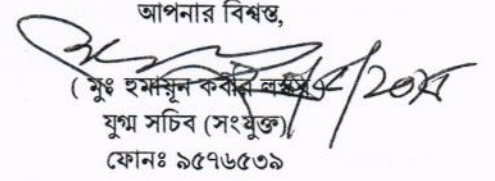 আপনার বিশ্বস্ত,
( মুঃ হুমায়ুন কবীর
যুগ্ম সচিব (সংযুক্ত)
ফোনঃ ৯৫৭৬৫৩৯